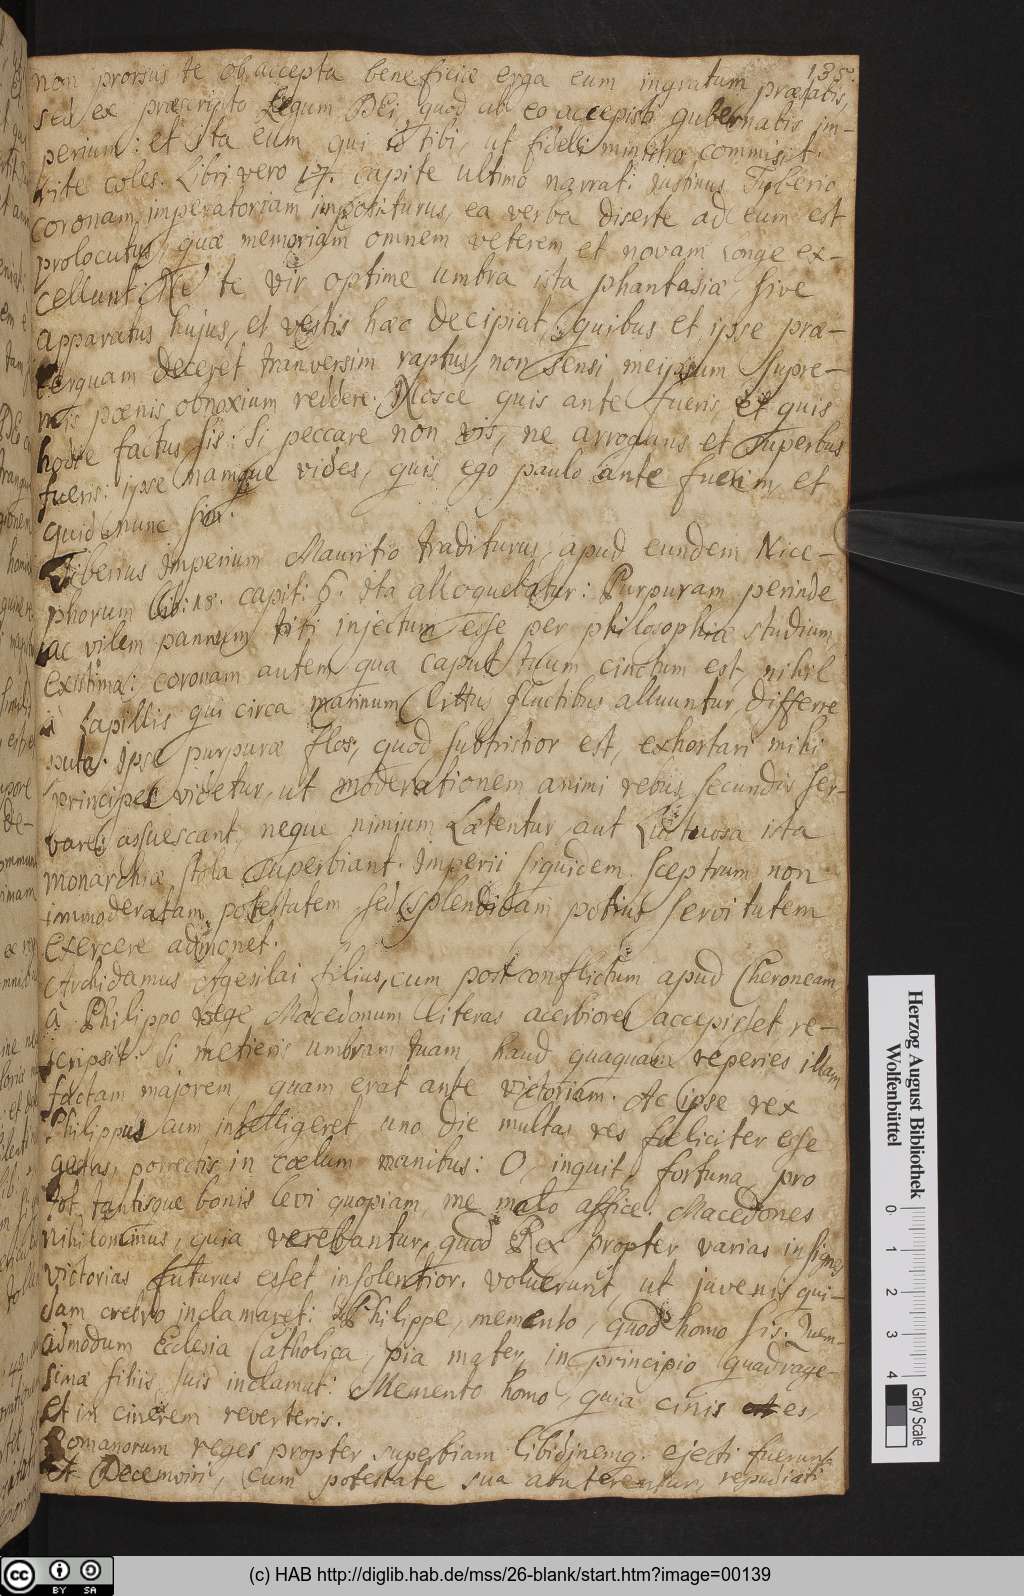 135.
non prorsus te ob accepta beneficia erga eum ingratum præstabis,
sed ex præscripto Legum DEi, quod ab eo accepisti gubernabis im-
perium: et ita eum qui id tibi, ut fideli ministro commisit.
rite coles. Libri vero 17. capite ultimo narrat. Justinus Tyberio
coronam imperatoriam impositurus, ea verba diserte ad eum est
prolocutus, quæ memoriam omnem veterem et novam longe ex-
cellunt: Ne te vir optime umbra ista phantasiæ, sive
apparatus hujus, et vestis hæc decipiat, quibus et ipse præ-
terquam deceret tranversim raptus, non sensi meipsum supre-
mis pœnis obnoxium reddere. Nosce quis ante fueris et quis
hodie factus sis: Si peccare non vis, ne arrogans et superbus
fueris: ipse namque vides, quis ego paulo ante fuerim, et
quid nunc sim.
Tiberius Imperium Mauritio traditurus, apud eundem Nice-
phorum lib: 18. capit: 6. Ita alloquebatur: Purpuram perinde
ac vilem pannum tibi injectum esse per philosophiæ studium,
existima: coronam autem qua caput tuum cinctum est, nihil
à Lapillis qui circa marinum littus fluctibus alluuntur, differre
puta. Ipse purpuræ flos, quod subtristior est, exhortari mihi
principes videtur, ut moderationem animi rebus secundis ser-
vare assuescant, neque nimium Lætentur, aut Luctuosa ista
monarchiæ stola superbiant. Imperii siquidem sceptrum non
immoderatam potestatem sed splendidam potius servitutem
exercere admonet.
Archidamus Agesilai filius, cum post conflictum apud Cheroneam
à Philippo rege Macedonum literas acerbiores accepisset, re-
scripsit: Si metieris umbram tuam haud quaquam reperies illam
factam majorem, quam erat ante victoriam. Ac ipse rex
Philippus cum intelligeret uno die multas res fœliciter esse
gestas, porrectis in cœlum manibus: O, inquit, fortuna, pro
tot, tantisque bonis levi quopiam, me malo affice. Macedones
nihilominus, quia verebantur, quod Rex propter varias insignes
victorias futurus esset insolentior. voluerunt, ut juvenis qui-
dam crebro inclamaret: Philippe, memento, quod homo sis. Quem-
admodum Ecclesia Catholica, pia mater, in principio quadrage-
simæ filiis suis inclamat: Memento homo, quia cinis es,
et in cinerem reverteris.
Romanorum reges propter superbiam libidinemq. ejecti fuerunt
et Decemviri, cum potestate sua abuterentur, repudiati
Herzog August Bibliothek
Wolfenbüttel
0 1 2 3 4
Gray Scale
cc BY SA
(c) HAB http://diglib.hab.de/mss/26-blank/start.htm?image=00139